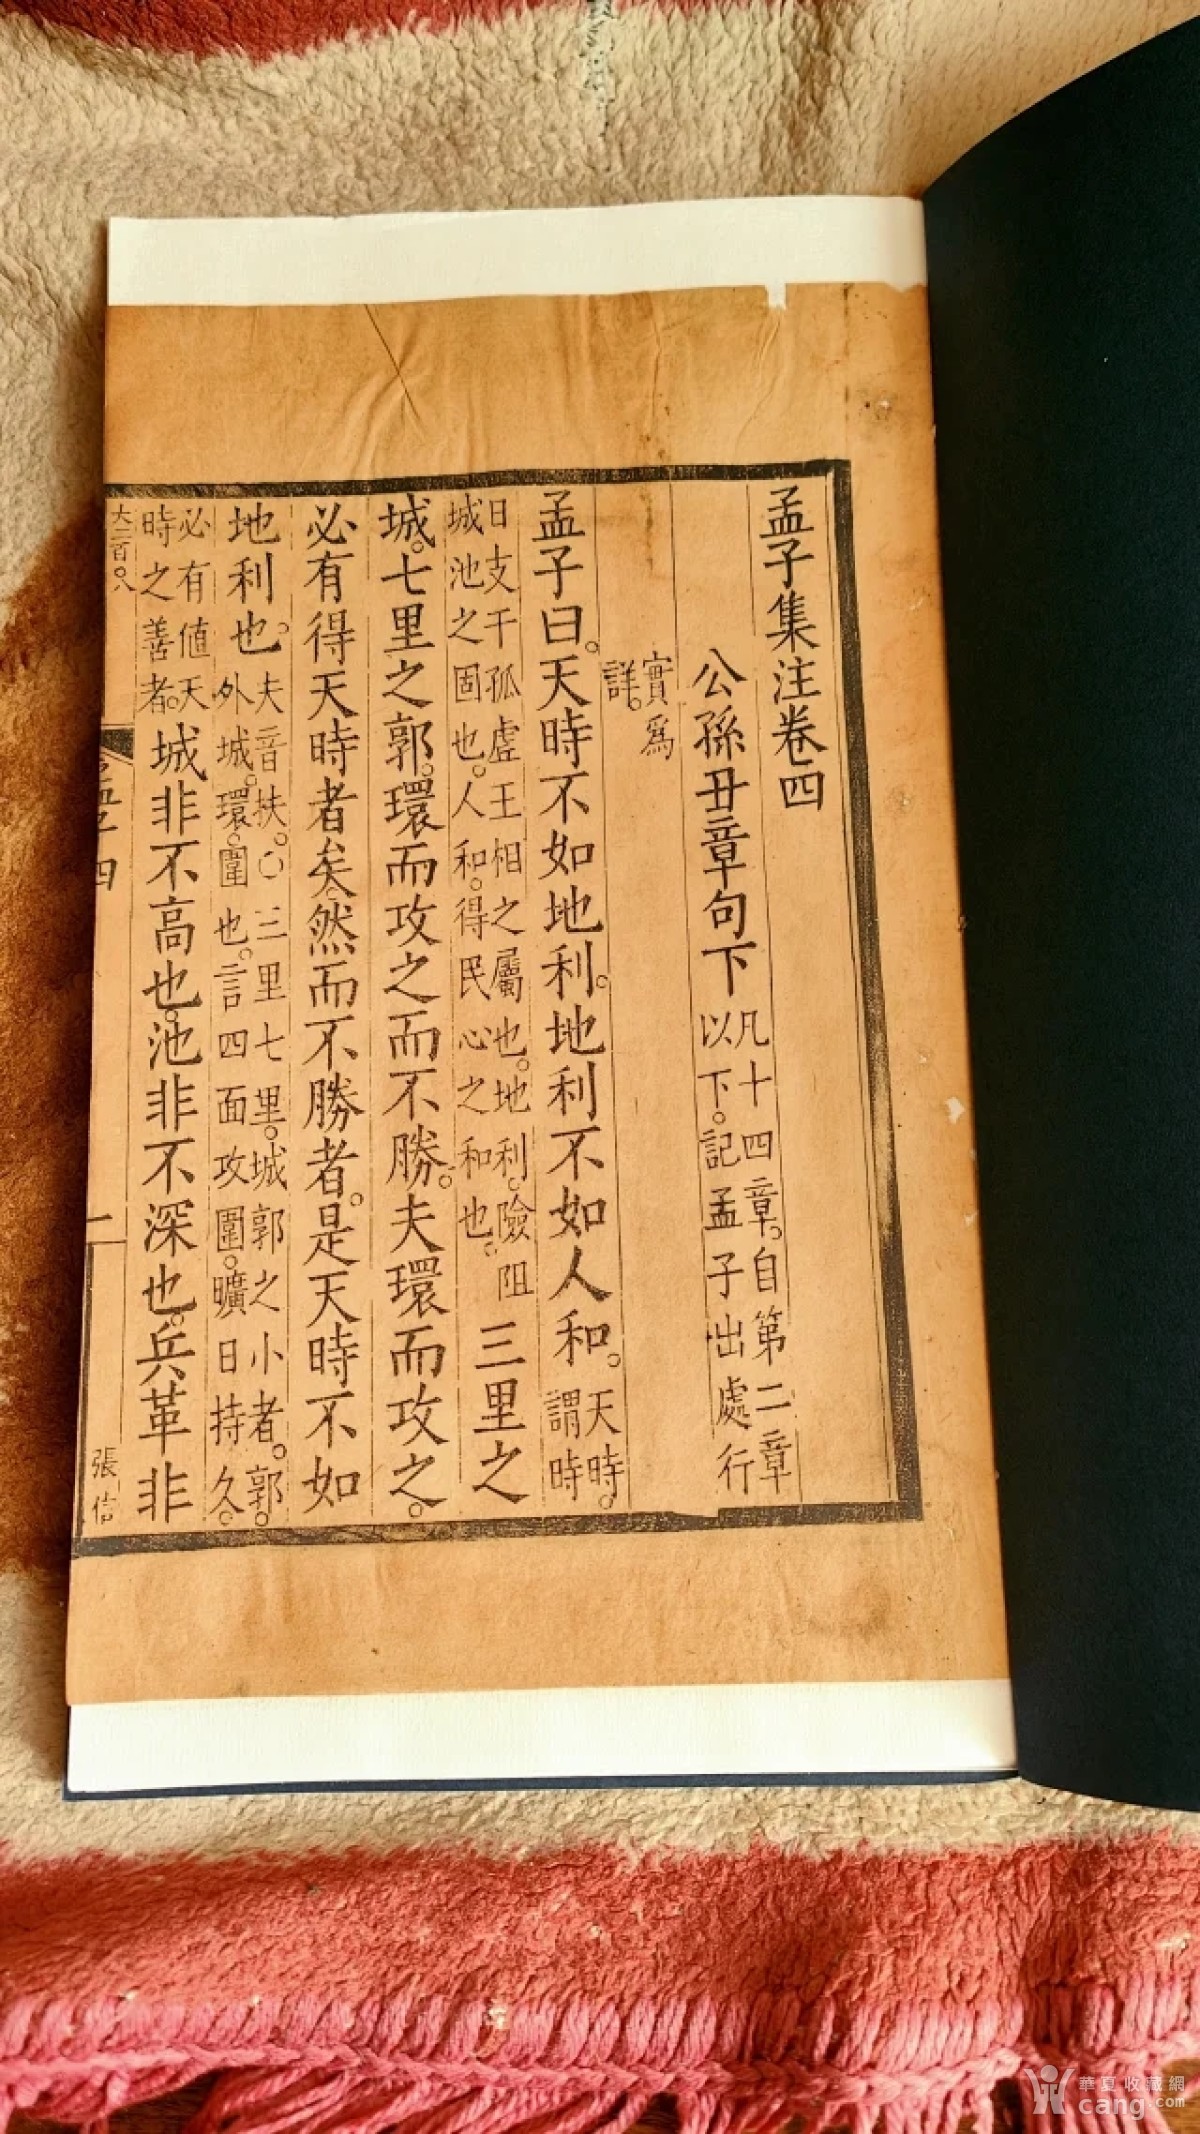 孟子集注卷四
公孫丑章句下 凡十四章。自第二章以下。記孟子出處行
實爲詳。
孟子曰。天時不如地利。地利不如人和。天時。謂時
日支干孤虛王相之屬也。地利。險阻城池之固也。人和。得民心之和也。三里之
城。七里之郭。環而攻之而不勝。夫環而攻之。
必有得天時者矣。然而不勝者。是天時不如
地利也。夫音扶。〇三里七里。城郭之小者。郭。外城。環。圍也。言四面攻圍。曠日持久。
必有值天時之善者。城非不高也。池非不深也。兵革非
大二百〇八
孟子四
張信
華夏收藏網
cang.com